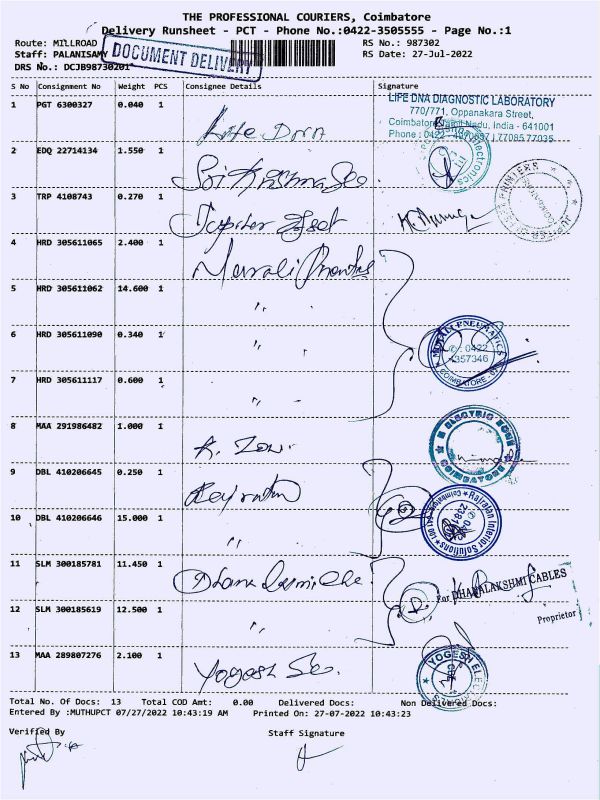 THE PROFESSIONAL COURIERS, Coimbatore
Delivery Runsheet - PCT - Phone No.:0422-3505555 - Page No.:1
Route: MILLROAD RS No.: 987302
Staff: PALANISAMY RS Date: 27-Jul-2022
DOCUMENT DELIVERY
DRS No.: DCJB98730201
S No Consignment No Weight PCS Consignee Details Signature
1 PGT 6300327 0.040 1 Life Dna
LIFE DNA DIAGNOSTIC LABORATORY
770/771, Oppanakara Street,
Coimbatore, Tamil Nadu, India - 641001
Phone : 0422 77085 77035
2 EDQ 22714134 1.550 1 Sri Krishna Ele
Electronics
3 TRP 4108743 0.270 1 Jupiter
JUPITER PRINTERS
4 HRD 305611065 2.400 1 Murali
5 HRD 305611062 14.600 1 "
6 HRD 305611090 0.340 1 "
MURALI PNEUMATICS
0422
COIMBATORE
7 HRD 305611117 0.600 1 "
8 MAA 291986482 1.000 1
ELECTRIC ZONE
COIMBATORE
9 DBL 410206645 0.250 1 Rajratan
Rajratan Interior Solutions
10 DBL 410206646 15.000 1 "
11 SLM 300185781 11.450 1 Dhana
For DHANALAKSHMI CABLES
12 SLM 300185619 12.500 1 "
Proprietor
13 MAA 289807276 2.100 1 Yogesh
YOGESH ELEC
Total No. Of Docs: 13 Total COD Amt: 0.00 Delivered Docs: Non Delivered Docs:
Entered By :MUTHUPCT 07/27/2022 10:43:19 AM Printed On: 27-07-2022 10:43:23
Verified By Staff Signature